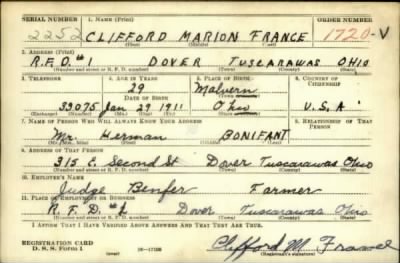 SERIAL NUMBER 1. NAME (Print) ORDER NUMBER
2252 CLIFFORD MARION FRANCE 1720-V
(First) (Middle) (Last)
2. ADDRESS (Print)
R.F.D.#1 DOVER TUSCARAWAS OHIO
(Number and street or R. F. D. number) (Town) (County) (State)
3. TELEPHONE 4. AGE IN YEARS 5. PLACE OF BIRTH 6. COUNTRY OF CITIZENSHIP
29 Malvern
DATE OF BIRTH (Town or county)
33075 Jan 29 1911 Ohio U.S.A
(Exchange) (Number) (Mo.) (Day) (Yr.) (State or country)
7. NAME OF PERSON WHO WILL ALWAYS KNOW YOUR ADDRESS 8. RELATIONSHIP OF THAT PERSON
Mr. Herman BONIFANT
(Mr., Mrs., Miss) (First) (Middle) (Last)
9. ADDRESS OF THAT PERSON
315 E. Second St Dover Tuscarawas Ohio
(Number and street or R. F. D. number) (Town) (County) (State)
10. EMPLOYER'S NAME
Judge Benfer Farmer
11. PLACE OF EMPLOYMENT OR BUSINESS
R.F.D. #1 Dover Tuscarawas Ohio
(Number and street or R. F. D. number) (Town) (County) (State)
I AFFIRM THAT I HAVE VERIFIED ABOVE ANSWERS AND THAT THEY ARE TRUE.
REGISTRATION CARD
D. S. S. Form 1 (over) Clifford M France
(Registrant's signature)